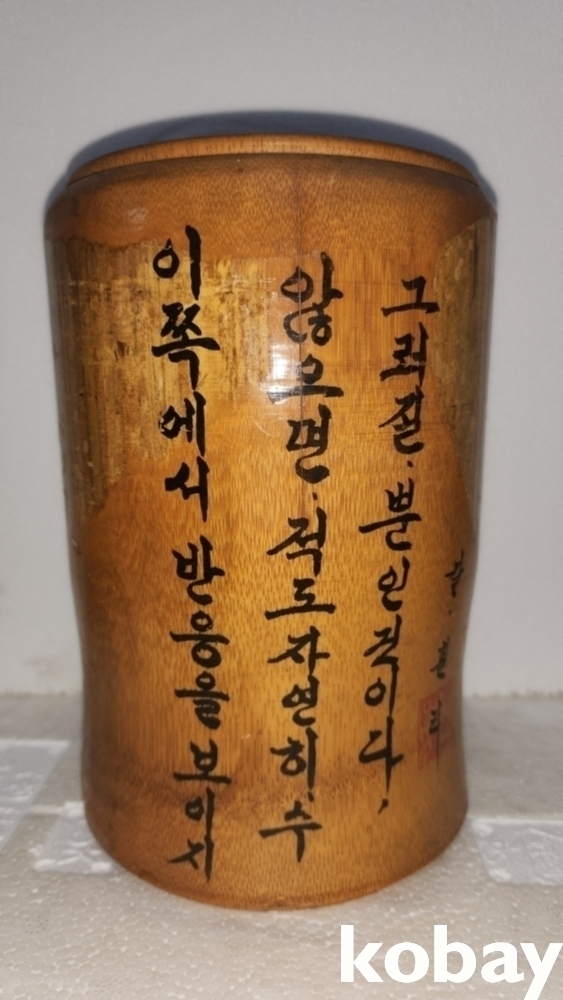 이쪽에서 반응을 보이지
않으면, 적도 자연히, 수
그러질, 뿐인것이다,
kobay